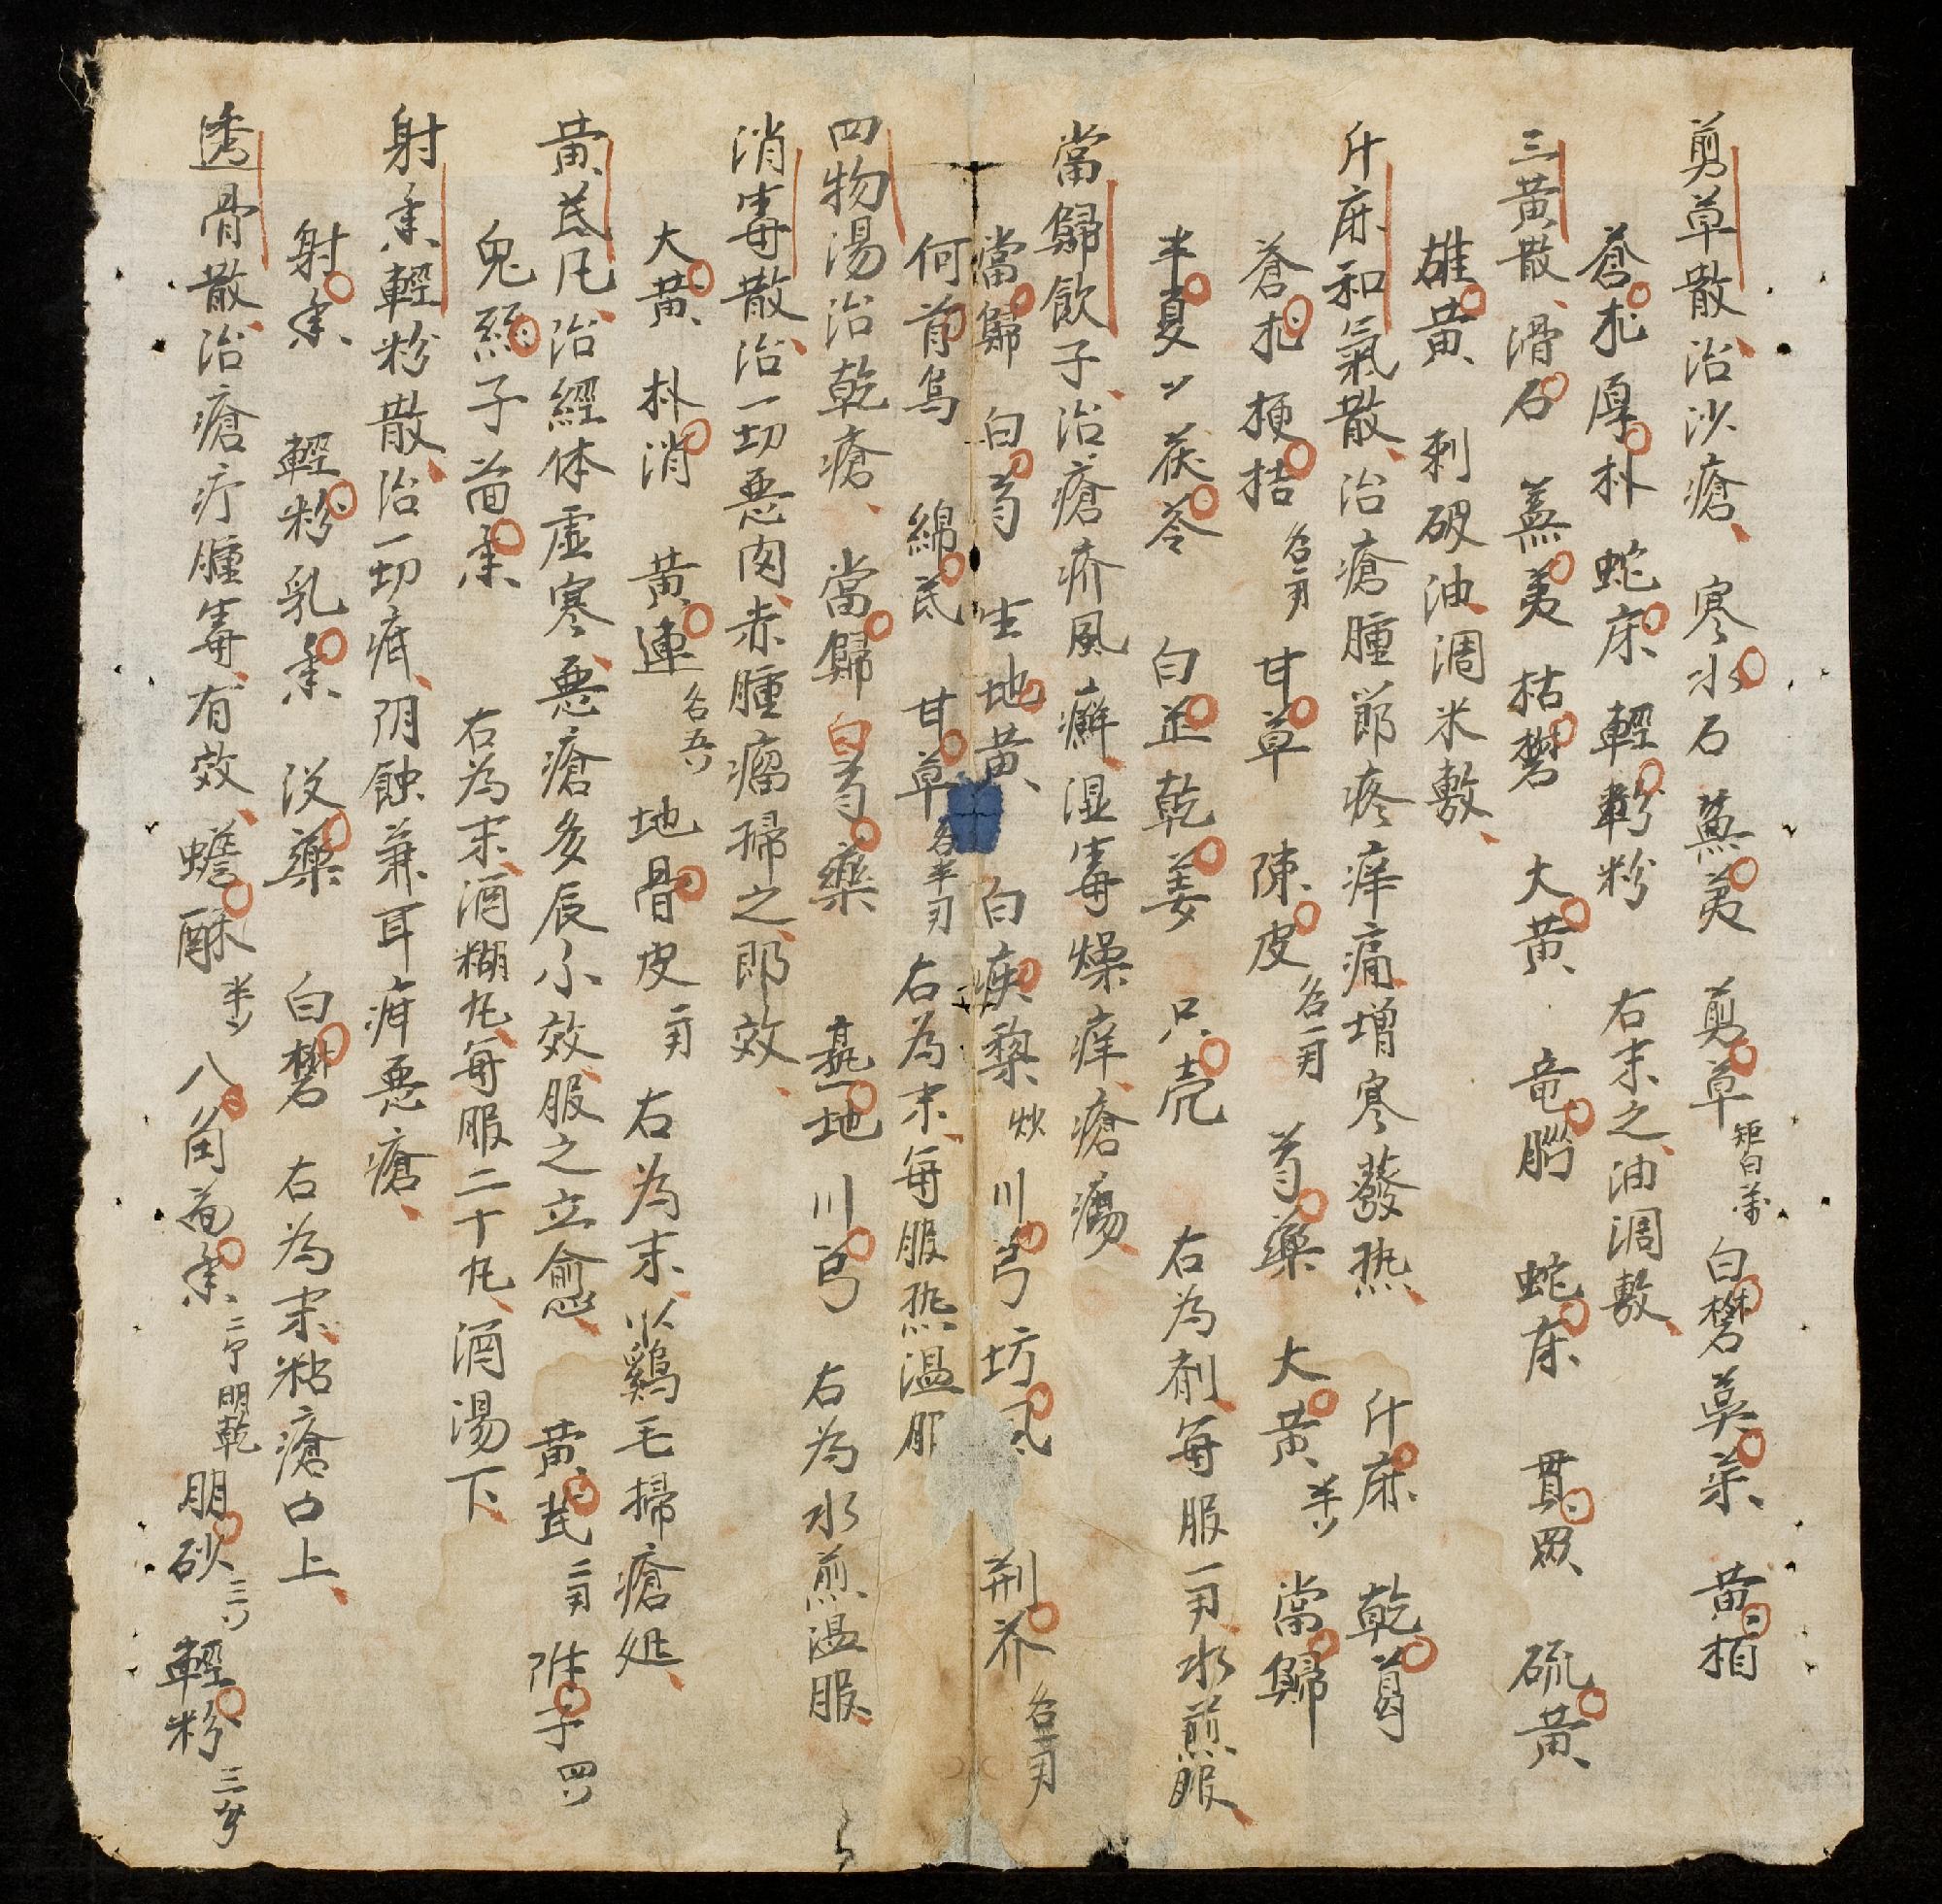 剪草散、治沙瘡、寒水石 蕪夷 剪草 白礬 吳茱 黃柏
蒼朮 厚朴 蛇床 輕粉 右末之、油調敷、
三黃散、滑石 蕪夷 枯礬 大黃 竜腦 蛇床 貫眾 硫黃
雄黃 刺破油調米敷、
升麻和氣散、治瘡腫節疼痒痛、增寒發熱、升麻 乾葛
蒼朮 桔梗 各一兩 甘草 陳皮 各一兩 芍藥 大黃 半 當歸
半夏 茯苓 白芷 乾姜 只壳 右為剤、每服一兩、水煎服、
當歸飲子、治瘡疥風癬、湿毒燥痒、瘡瘍、
當歸 白芍 生地黃 白疾黎 炒 川芎 坊風 荆芥 各一兩
何首烏 綿芪 甘草 各半兩 右為末、每服熱温服
四物湯治乾瘡、當歸 白芍藥 熟地 川芎 右為水煎温服、
消毒散、治一切悪肉、赤腫瘤掃之、即效、
大黃 朴消 黃連 各五 地骨皮 二兩 右為末、以鷄毛掃瘡処、
黃芪凡、治經体虚寒、悪瘡多辰小效、服之立愈、黃芪 二兩 附子 四
兔絲子 茴香 右為末、酒糊丸、每服二十丸、酒湯下、
射香輕粉散、治一切疳、阴蝕兼耳疳悪瘡、
射香 輕粉 乳香 没藥 白礬 右為末、粘瘡口上、
透骨散、治瘡疔腫毒、有效、蟾酥 半 八角茴香 朋砂 三 輕粉 三